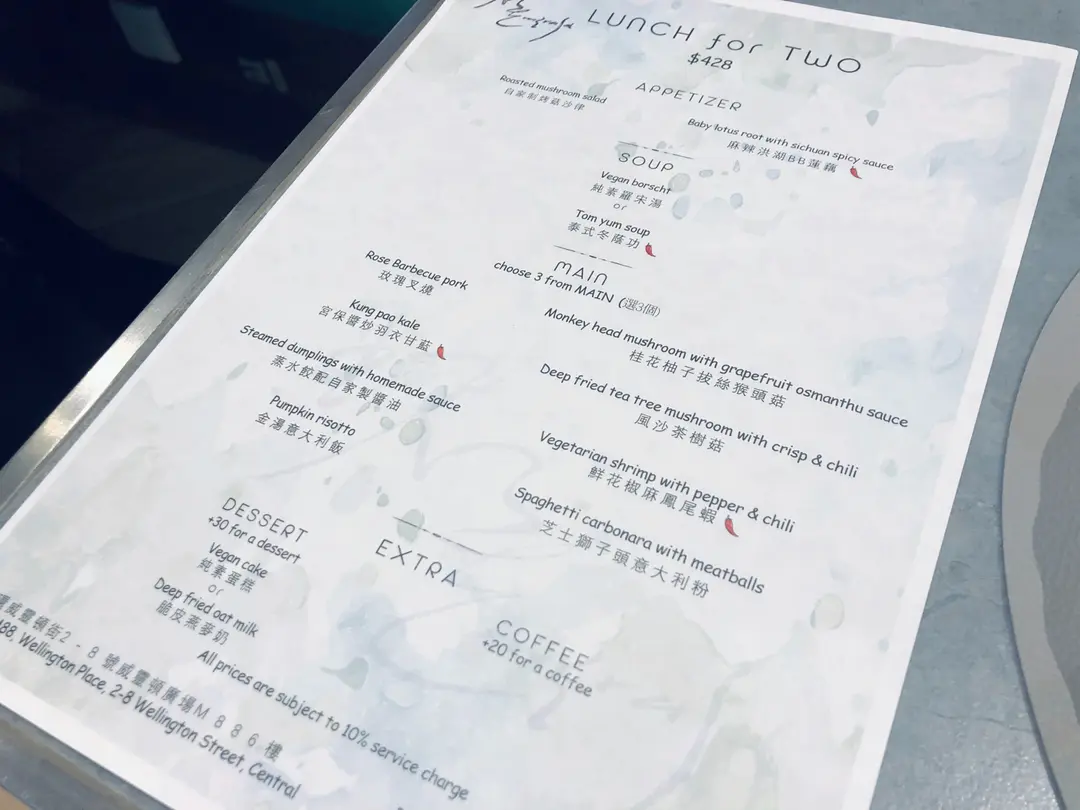 LUNCH for TWO
$428
APPETIZER
Roasted mushroom salad
自家制烤菇沙律
Baby lotus root with sichuan spicy sauce
麻辣洪湖BB蓮藕
SOUP
Vegan borscht
純素羅宋湯
or
Tom yum soup
泰式冬蔭功
MAIN
choose 3 from MAIN (選3個)
Rose Barbecue pork
玫瑰叉燒
Kung pao kale
宮保醬炒羽衣甘藍
Steamed dumplings with homemade sauce
蒸水餃配自家製醬油
Pumpkin risotto
金湯意大利飯
Monkey head mushroom with grapefruit osmanthu sauce
桂花柚子拔絲猴頭菇
Deep fried tea tree mushroom with crisp & chili
風沙茶樹菇
Vegetarian shrimp with pepper & chili
鮮花椒麻鳳尾蝦
Spaghetti carbonara with meatballs
芝士獅子頭意大利粉
EXTRA
DESSERT
+30 for a dessert
Vegan cake
純素蛋糕
or
Deep fried oat milk
脆皮燕麥奶
COFFEE
+20 for a coffee
All prices are subject to 10% service charge
威靈頓街2-8號威靈頓廣場M886樓
88, Wellington Place, 2-8 Wellington Street, Central